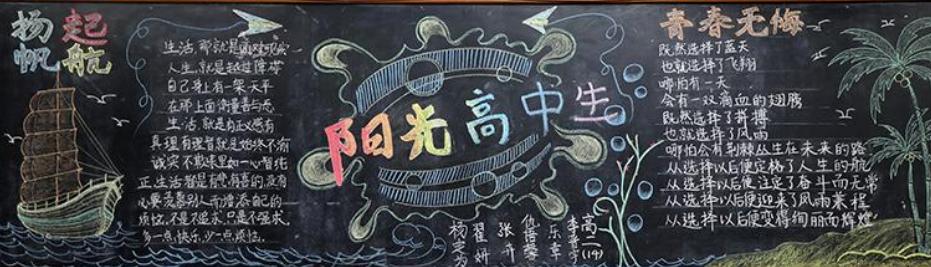 扬帆
起航
生活,那就是面对现实
人生,就是越过障碍
自己身上有一架天平
在那上面衡量善与恶
生活,就是有正义感有
真理有理智就是始终不渝
诚实不欺表里如一心智纯
正,生活若是有忧有喜的,没有
必要羡慕别人而增添自己的
烦恼,不是不追求,只是不强求
多一点快乐,少一点烦恼。
阳光高中生
青春无悔
既然选择了蓝天
也就选择了飞翔
哪怕有一天
会有一双滴血的翅膀
既然选择了拼搏
也就选择了风雨
哪怕会有荆棘丛生在未来的路
从选择以后便定格了人生的航
从选择以后便注定了奋斗而无常
从选择以后便迎来了风雨兼程
从选择以后便变得绚丽而辉煌
高二(19)